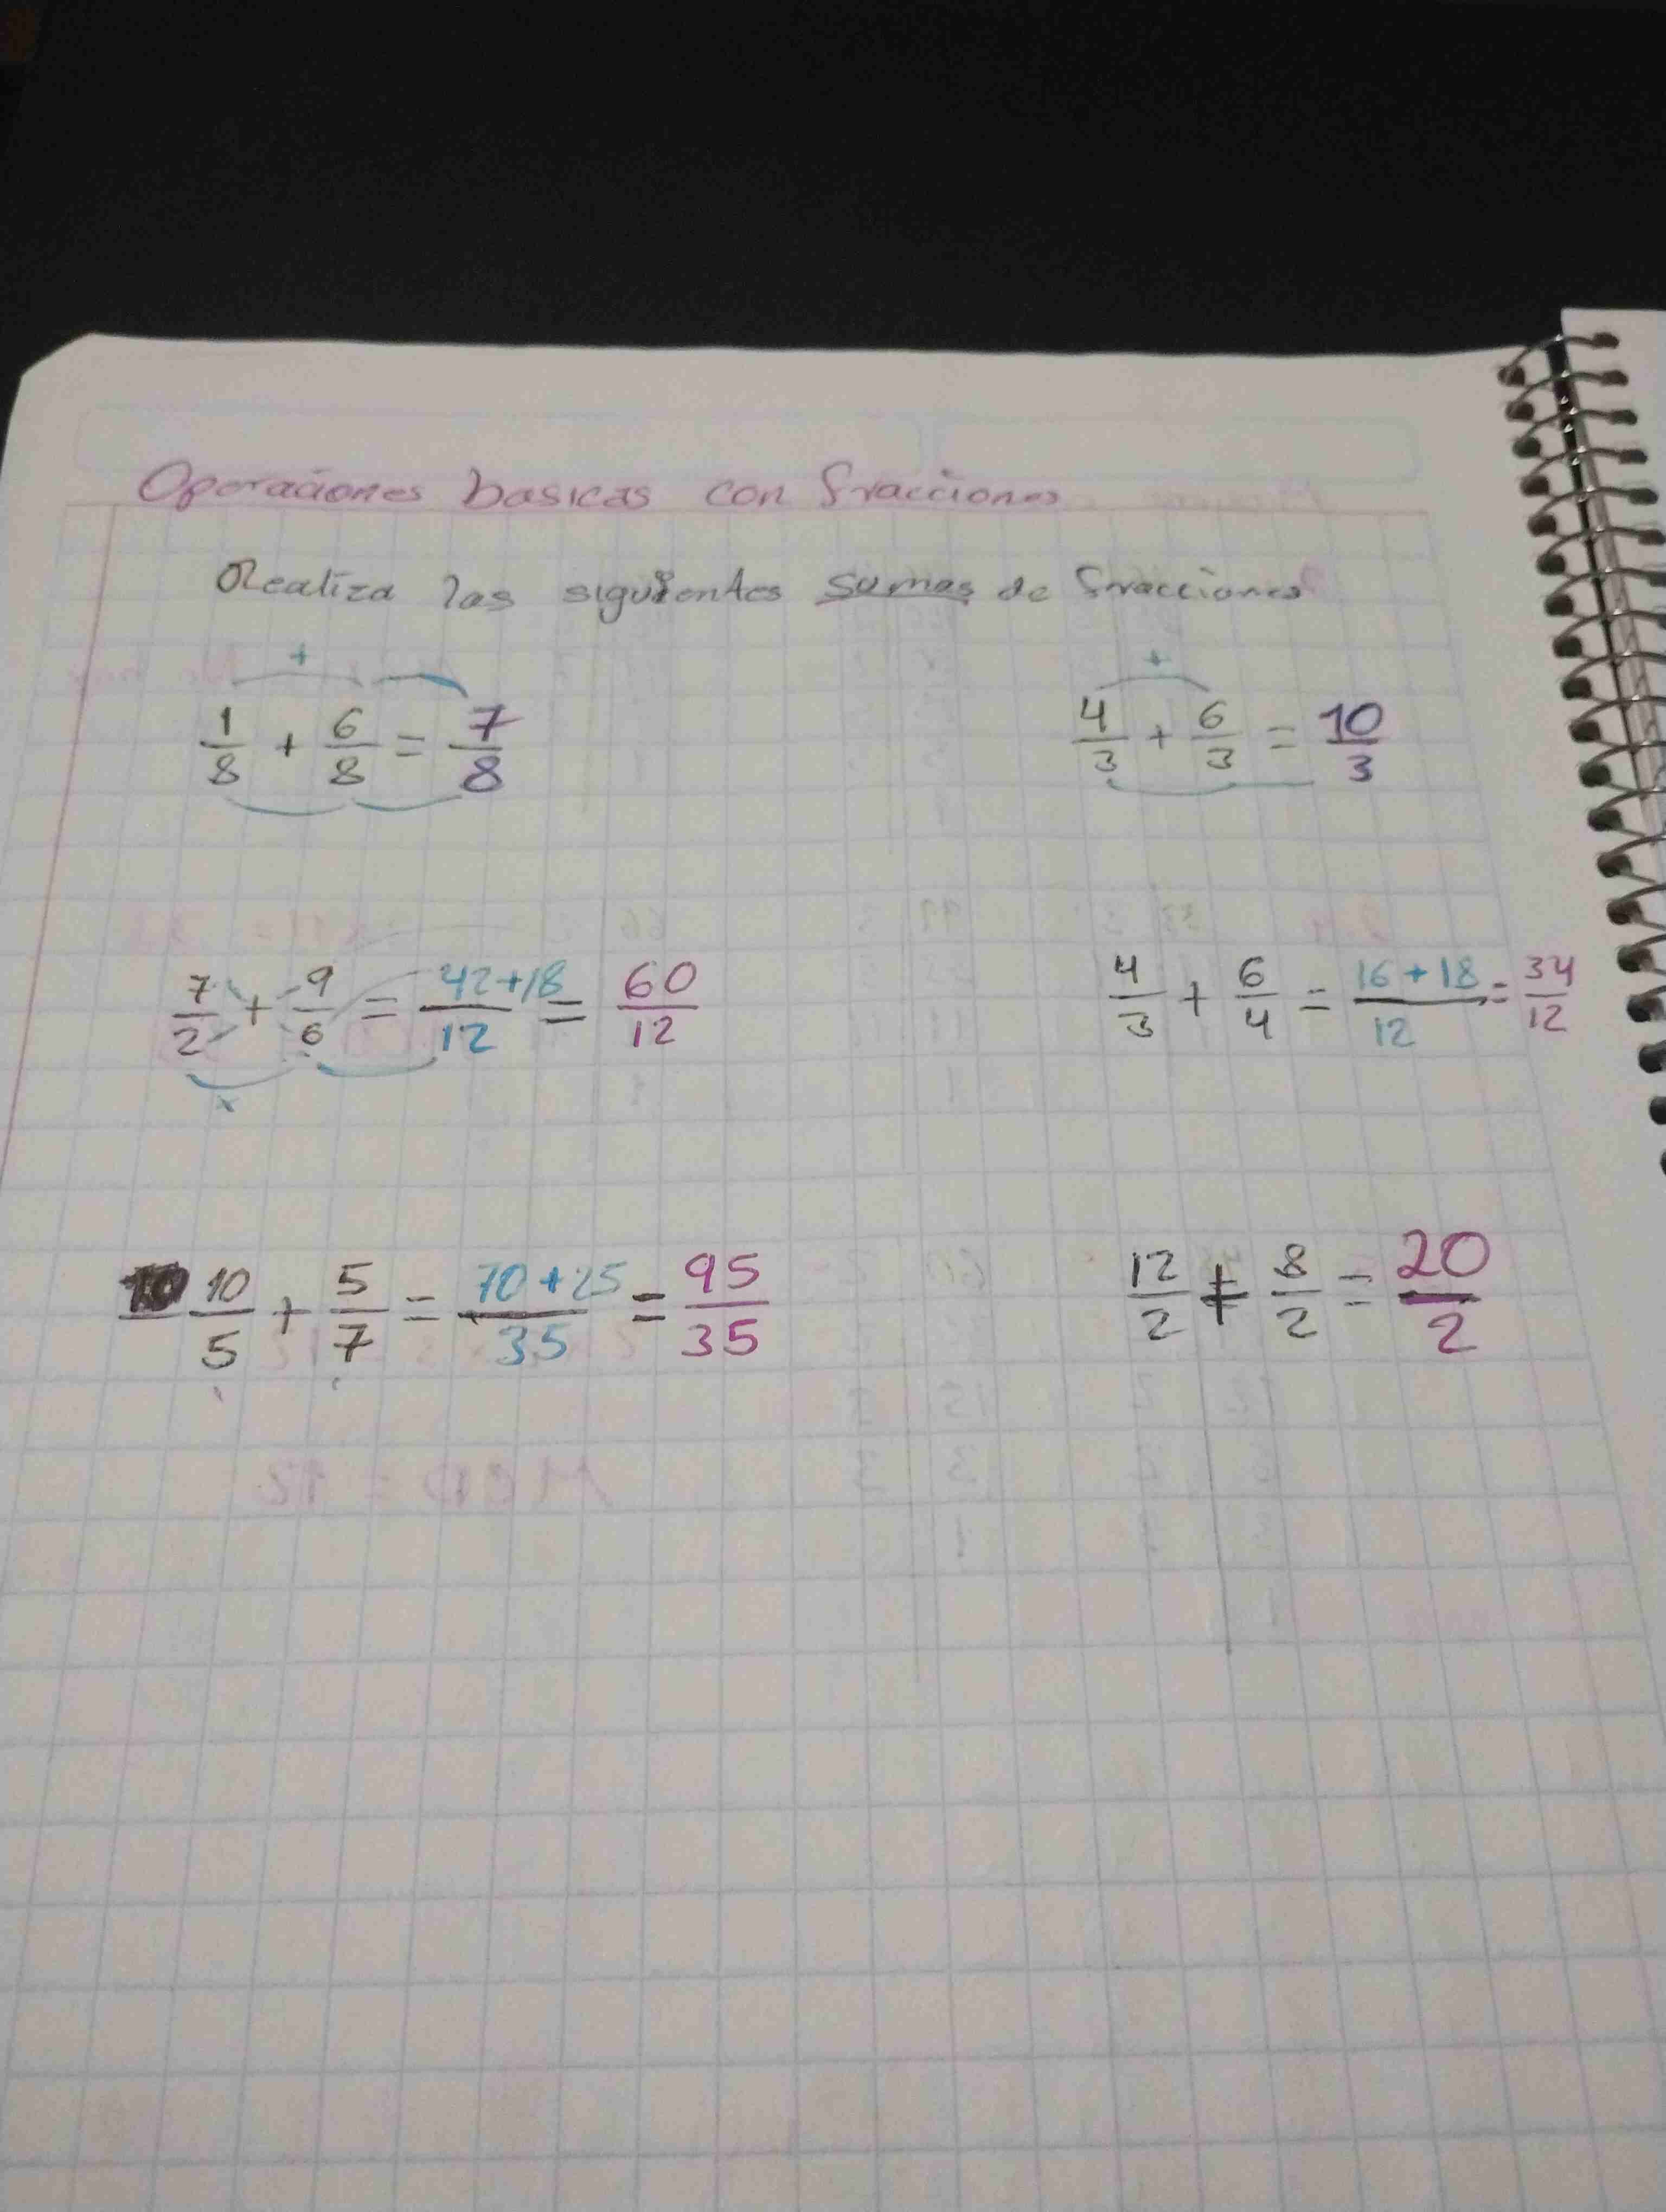 Operaciones basicas con fracciones
Realiza las siguientes sumas de fracciones
+ +
1/8 + 6/8 = 7/8 4/3 + 6/3 = 10/3
7/2 + 9/6 = 42+18/12 = 60/12 4/3 + 6/4 = 16+18/12 = 34/12
x
10/5 + 5/7 = 70+25/35 = 95/35 12/2 + 8/2 = 20/2